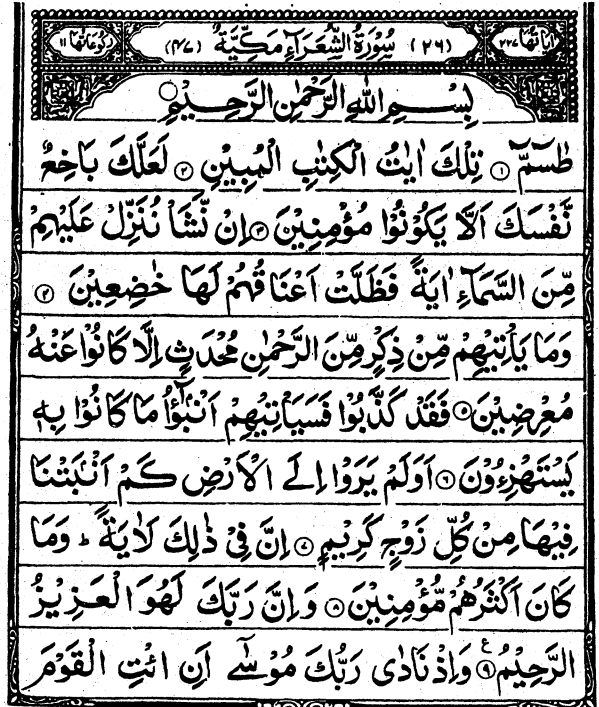 اٰیَاتُهَا ۲۲۷ (۲۶) سُوْرَةُ الشُّعَرَآءِ مَكِّيَّةٌ (۴۷) رُكُوْعَاتُهَا ۱۱
بِسْمِ اللهِ الرَّحْمٰنِ الرَّحِيْمِ
طٰسٓمّٓ ۝۱ تِلْكَ اٰيٰتُ الْكِتٰبِ الْمُبِيْنِ ۝۲ لَعَلَّكَ بَاخِعٌ
نَّفْسَكَ اَلَّا يَكُوْنُوْا مُؤْمِنِيْنَ ۝۳ اِنْ نَّشَاْ نُنَزِّلْ عَلَيْهِمْ
مِّنَ السَّمَآءِ اٰيَةً فَظَلَّتْ اَعْنَاقُهُمْ لَهَا خٰضِعِيْنَ ۝۴
وَمَا يَاْتِيْهِمْ مِّنْ ذِكْرٍ مِّنَ الرَّحْمٰنِ مُحْدَثٍ اِلَّا كَانُوْا عَنْهُ
مُعْرِضِيْنَ ۝۵ فَقَدْ كَذَّبُوْا فَسَيَاْتِيْهِمْ اَنْۢبٰٓؤُا مَا كَانُوْا بِهٖ
يَسْتَهْزِءُوْنَ ۝۶ اَوَلَمْ يَرَوْا اِلَى الْاَرْضِ كَمْ اَنْۢبَتْنَا
فِيْهَا مِنْ كُلِّ زَوْجٍ كَرِيْمٍ ۝۷ اِنَّ فِيْ ذٰلِكَ لَاٰيَةً ؕ وَمَا
كَانَ اَكْثَرُهُمْ مُّؤْمِنِيْنَ ۝۸ وَاِنَّ رَبَّكَ لَهُوَ الْعَزِيْزُ
الرَّحِيْمُ ۝۹ ع وَاِذْ نَادٰى رَبُّكَ مُوْسٰٓى اَنِ ائْتِ الْقَوْمَ